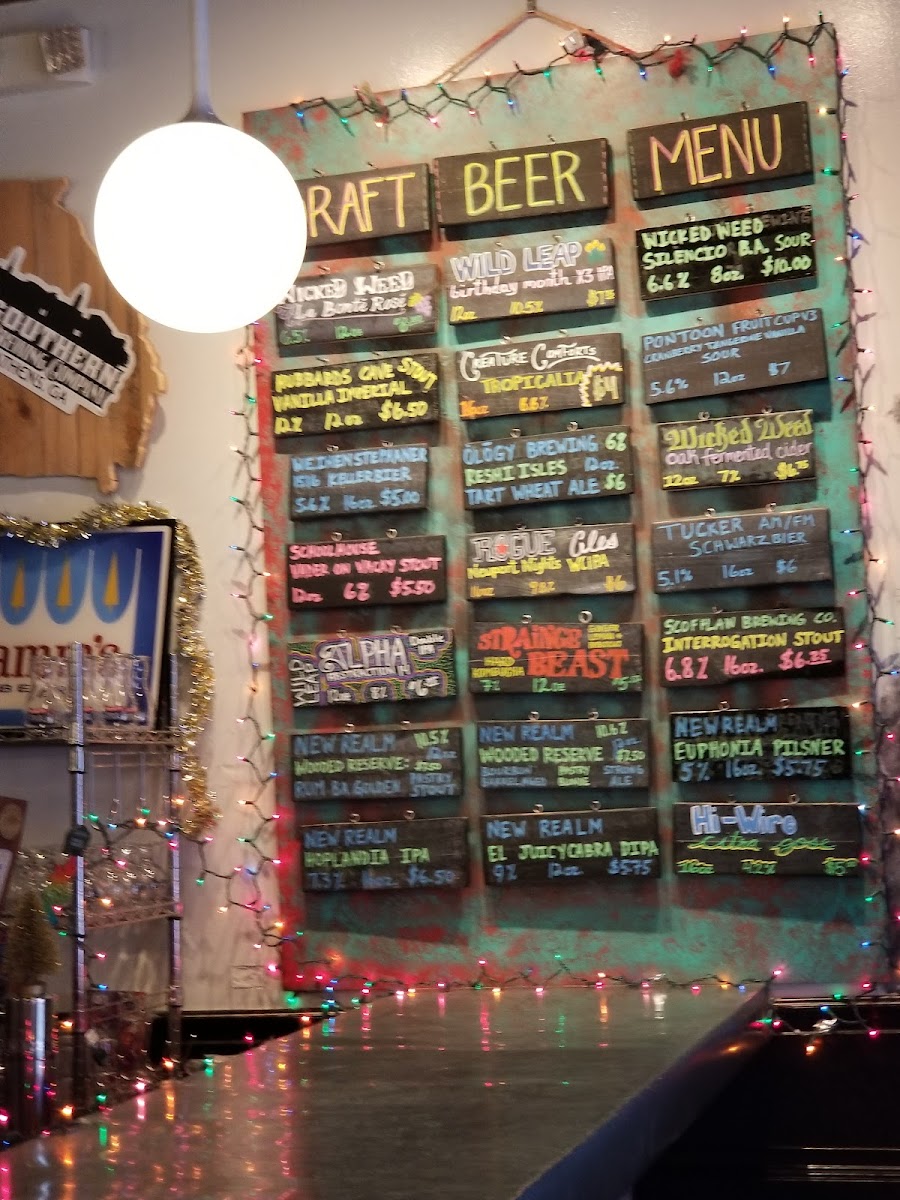 RAFT
BEER
MENU
WICKED WEED
La Bonté Rosé
6.5% 12oz
HUBBARDS CAVE STOUT
VANILLA IMPERIAL
12% 12oz $6.50
WEIHENSTEPHANER
1516 KELLERBIER
5.6% 16oz $5.00
SCHOOLHOUSE
VADER ON WACKY STOUT
12oz 6% $5.50
ALPHA
ABSTRACTION
Double
12oz 8%
NEW REALM 10.5%
WOODED RESERVE:
RUM BA GOLDEN PASTRY STOUT
NEW REALM
HOPLANDIA IPA
7.3% 16oz $6.50
WILD LEAP
birthday month X3 IPA
12oz 10.5%
CREATURE COMFORTS
TROPICALIA
$4
16oz 6.6%
OLOGY BREWING 6%
KESHI ISLES 12oz
TART WHEAT ALE $6
ROGUE Ales
Newport Nights WCIPA
$6
STRAINGE
BEAST
HARD KOMBUCHA
7% 12oz
NEW REALM 10.6%
WOODED RESERVE
STRONG
ALE
NEW REALM
EL JUICYCABRA DIPA
9% 12oz $5.75
WICKED WEED
SILENCIO B.A. SOUR
6.6% 8oz $10.00
PONTOON FRUIT CUP V3
CRANBERRY TANGERINE VANILLA
SOUR
5.6% 12oz $7
Wicked Weed
oak fermented cider
12oz 7%
TUCKER AM/FM
SCHWARZBIER
5.1% 16oz $6
SCOFFLAW BREWING CO.
INTERROGATION STOUT
6.8% 16oz. $6.25
NEW REALM
EUPHONIA PILSNER
5% 16oz $5.75
Hi-Wire
citra gose
16oz 4.2%
SOUTHERN
BREWING COMPANY
ATHENS, GA
amm's
BE